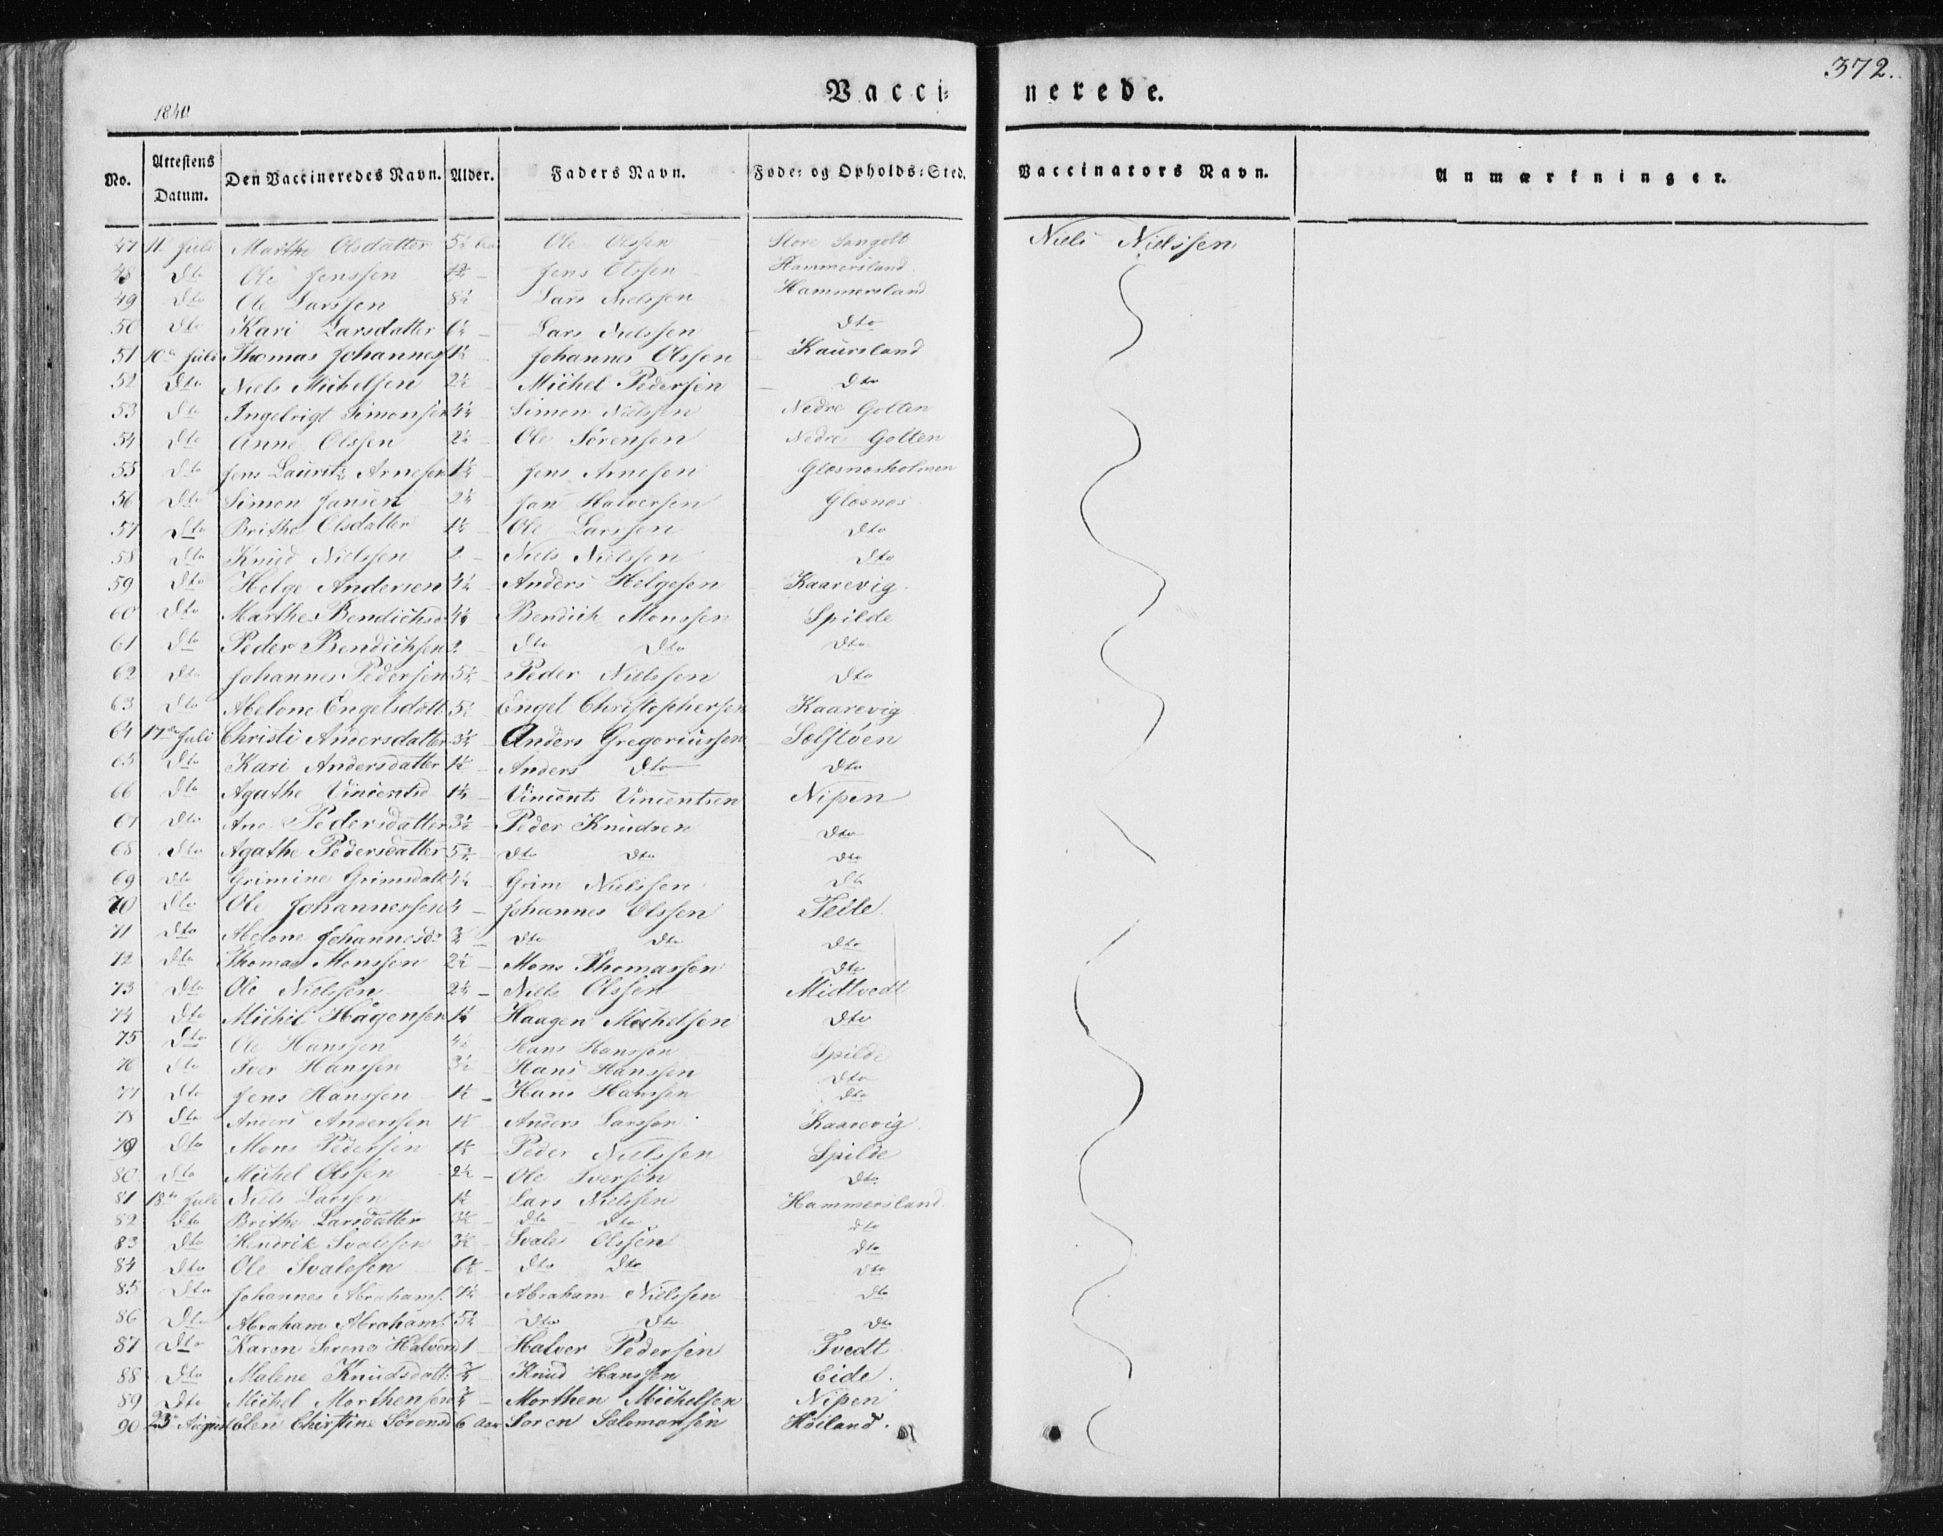 372.
Vacci- nerede.
1840
No. Attestens Datum. Den Vaccineredes Navn. Alder. Faders Navn. Føde- og Opholds-Sted. Vaccinators Navn. Anmærkninger.
47 Juli Marthe Olsdatter 5½ Ole Olssen Store Niels Nielssen
48 Dto Ole Jenssen Jens Olssen Hammersland
49 Dto Ole Larssen 8½ Lars Nielssen Hammersland
50 Dto Kari Larsdatter Lars Nielssen Dto
51 10de Juli Thomas Johannes Johannes Olssen Kaursland
52 Dto Niels Michelsen Michel Pedersen Dto
53 Dto Ingebrigt Simonsen Simon Nielssen Nedre Golten
54 Dto Anne Olssen Ole Sørensen Nedre Golten
55 Dto Jens Lauritz Arnesen Jens Arnesen Glesnesholmen
56 Dto Simon Jansen Jan Halversen Glesnes
57 Dto Brithe Olsdatter Ole Larssen Dto
58 Dto Knud Nielssen 2 Niels Nielssen Dto
59 Dto Helge Andersen Anders Helgesen Kaarevig
60 Dto Marthe Bendichsd Bendich Monssen Spilde
61 Dto Peder Bendichsen 2 Dto Dto Dto
62 Dto Johannes Pedersen Peder Nielssen Dto
63 Dto Abelone Engelsdatt Engel Christophersen Kaarevig
64 17de Juli Christi Andersdatter Anders Gregoriussen Solstøen
65 Dto Kari Andersdatter Anders Dto Dto
66 Dto Agathe Vincentsd Vincents Vincentsen Nipen
67 Dto Ane Pedersdatter 3½ Peder Knudsen Dto
68 Dto Agathe Pedersdatter Dto Dto Dto
69 Dto Grimine Grimsdatt Grim Nielssen Dto
70 Dto Ole Johannessen Johannes Olssen
71 Dto Abelone Johannesd Dto Dto Dto
72 Dto Thomas Monssen Mons Thomassen Dto
73 Dto Ole Nielssen Niels Olssen Midtvedt
74 Dto Michel Hågensen Haagen Michelsen Dto
75 Dto Ole Hanssen Hans Hanssen Spilde
76 Dto Iver Hanssen Hans Hanssen Dto
77 Dto Jens Hanssen Hans Hanssen Dto
78 Dto Anders Anderssen Anders Larssen Kaarevig
79 Dto Mons Pedersen Peder Nielssen Spilde
80 Dto Michel Olssen Ole Iversen Dto
81 18de Juli Niels Larssen Lars Nielssen Hammersland
82 Dto Brithe Larsdatter Dto Dto Dto
83 Dto Hendrik Svalesen Svale Olssen Dto
84 Dto Ole Svalesen Dto Dto Dto
85 Dto Johannes Abrahams. Abraham Nielssen Dto
86 Dto Abraham Abrahams. Dto Dto Dto
87 Dto Karen Serene Halvors 1 Halver Pedersen Tvedt
88 Dto Malene Knudsdatt. Knud Hanssen Eide.
89 Dto Michel Morthensen Morthen Michelsen Nipen
90 23 August Elen Christine Sørensd 6 Aar Søren Salomonsen Høiland.